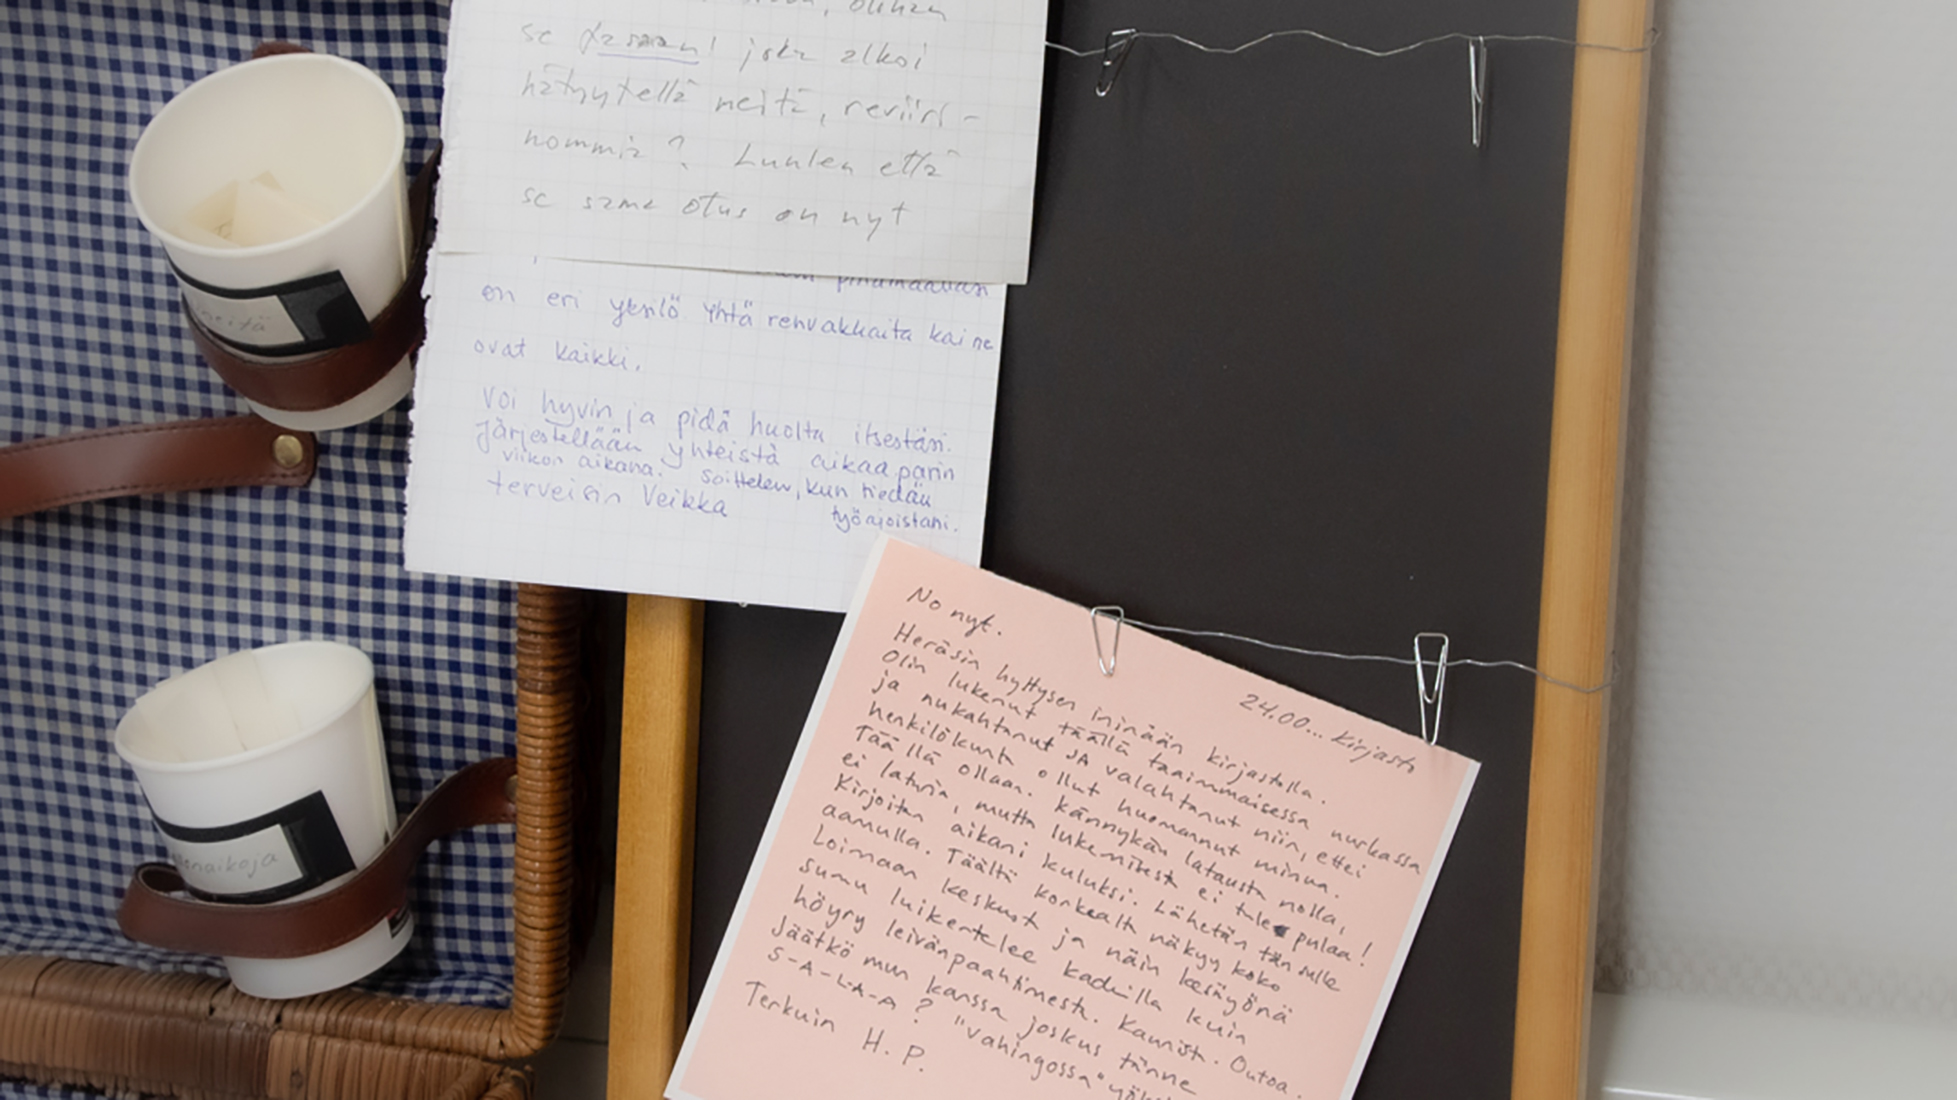 se
joka alkoi
hätyytellä meitä, reviiri-
nommia? Luulen että
se sama otus on nyt
on eri yksilö yhtä renvakkaita kai ne
ovat kaikki.
Voi hyvin ja pidä huolta itsestäsi.
Järjestellään yhteistä aikaa parin
viikon aikana. Soittelen, kun tiedän
työajoistani.
terveisin Veikka
neitä
No nyt.
24.00... Kirjasto
Heräsin hyttysen ininään kirjastolla.
Olin lukenut täällä taaimmaisessa nurkassa
ja nukahtanut JA valahtanut niin, ettei
henkilökunta ollut huomannut minua.
Täällä ollaan. Kännykän latausta nolla,
ei laturia, mutta lukemista ei tule pulaa!
Kirjoitan aikani kuluksi. Lähetän tän sulle
aamulla. Täältä korkealta näkyy koko
Loimaan keskusta ja näin kesäyönä
sumu luikertelee kaduilla kuin
höyry leivänpaahtimesta. Kaunista. Outoa.
Jäätkö mun kanssa joskus tänne
S-A-L-A-A? "vahingossa"
Terkuin H.P.